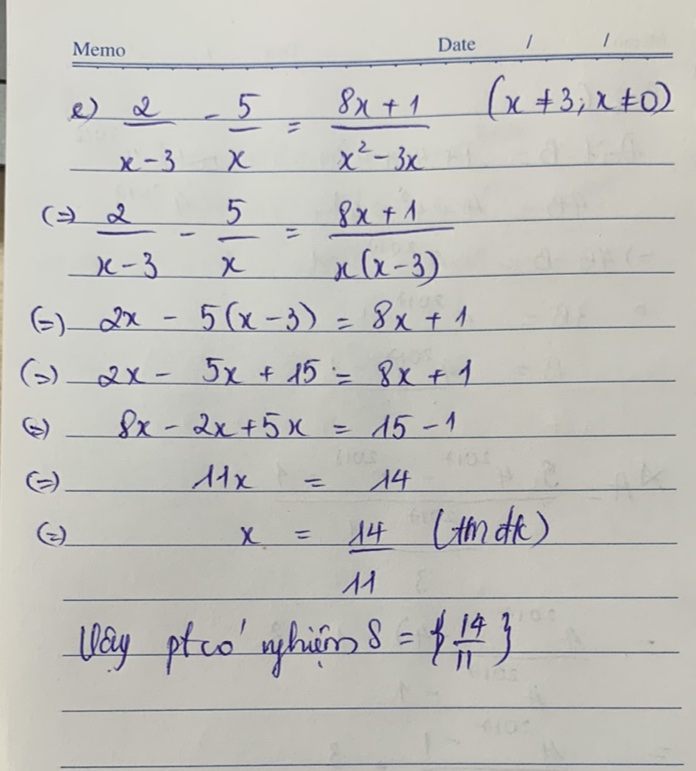 Memo Date / /
e) 2/(x-3) - 5/x = (8x+1)/(x²-3x) (x ≠ 3; x ≠ 0)
(=) 2/(x-3) - 5/x = (8x+1)/(x(x-3))
(=) 2x - 5(x-3) = 8x+1
(=) 2x - 5x + 15 = 8x+1
(=) 8x - 2x + 5x = 15 - 1
(=) 11x = 14
(=) x = 14/11 (tmđk)
Vậy pt có nghiệm S = {14/11}